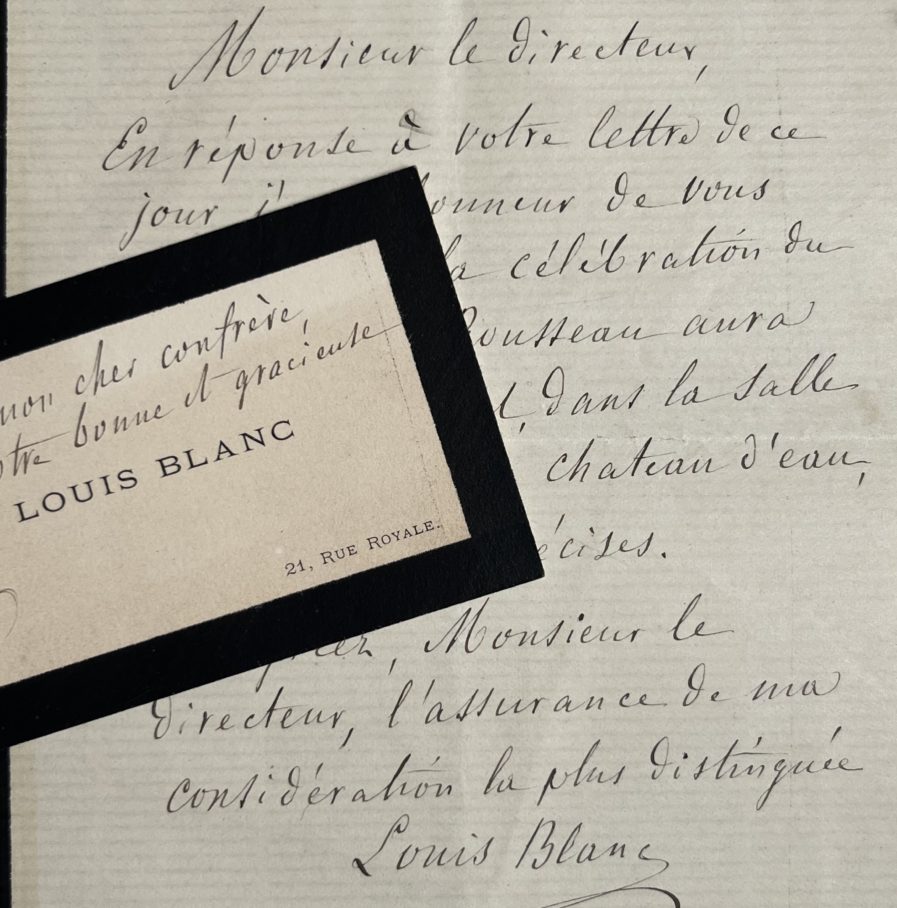 Monsieur le directeur,
En réponse à votre lettre de ce
jour j' onneur de vous
la célébration du
ousseau aura
dans la salle
chateau d'eau,
écises.
Monsieur le
directeur, l'assurance de ma
considération la plus distinguée
Louis Blanc
mon cher confrère,
otre bonne et gracieuse
LOUIS BLANC
21, RUE ROYALE.